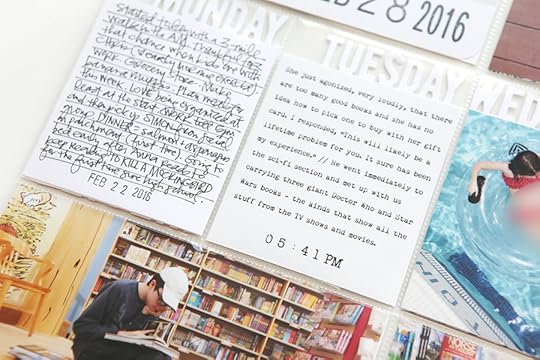 FEB 28 2016
MONDAY
started today with a 2-mile
walk in the AM. Thankful for
that chance when I do PM with
work. Grocery store. Made
banana muffins. Plan meals for
this week. LOVE being organized at
least at the start. SHERRY to the gym
and then pick up SIMON from Social
Group. DINNER - salmon & asparagus
in parchment (first time). Going to
bed early after living room to
keep reading TO KILL A MOCKINGBIRD
for the first time since high school.
FEB 22 2016
TUESDAY
She just agonized, very loudly, that there
are too many good books and she has no
idea how to pick one to buy with her gift
card. I responded, "This will likely be a
lifetime problem for you. It sure has been
my experience." // He went immediately to
the sci-fi section and met up with us
carrying three giant Doctor Who and Star
Wars books - the kinds that show all the
stuff from the TV shows and movies.
05:41PM
WED
NORSE